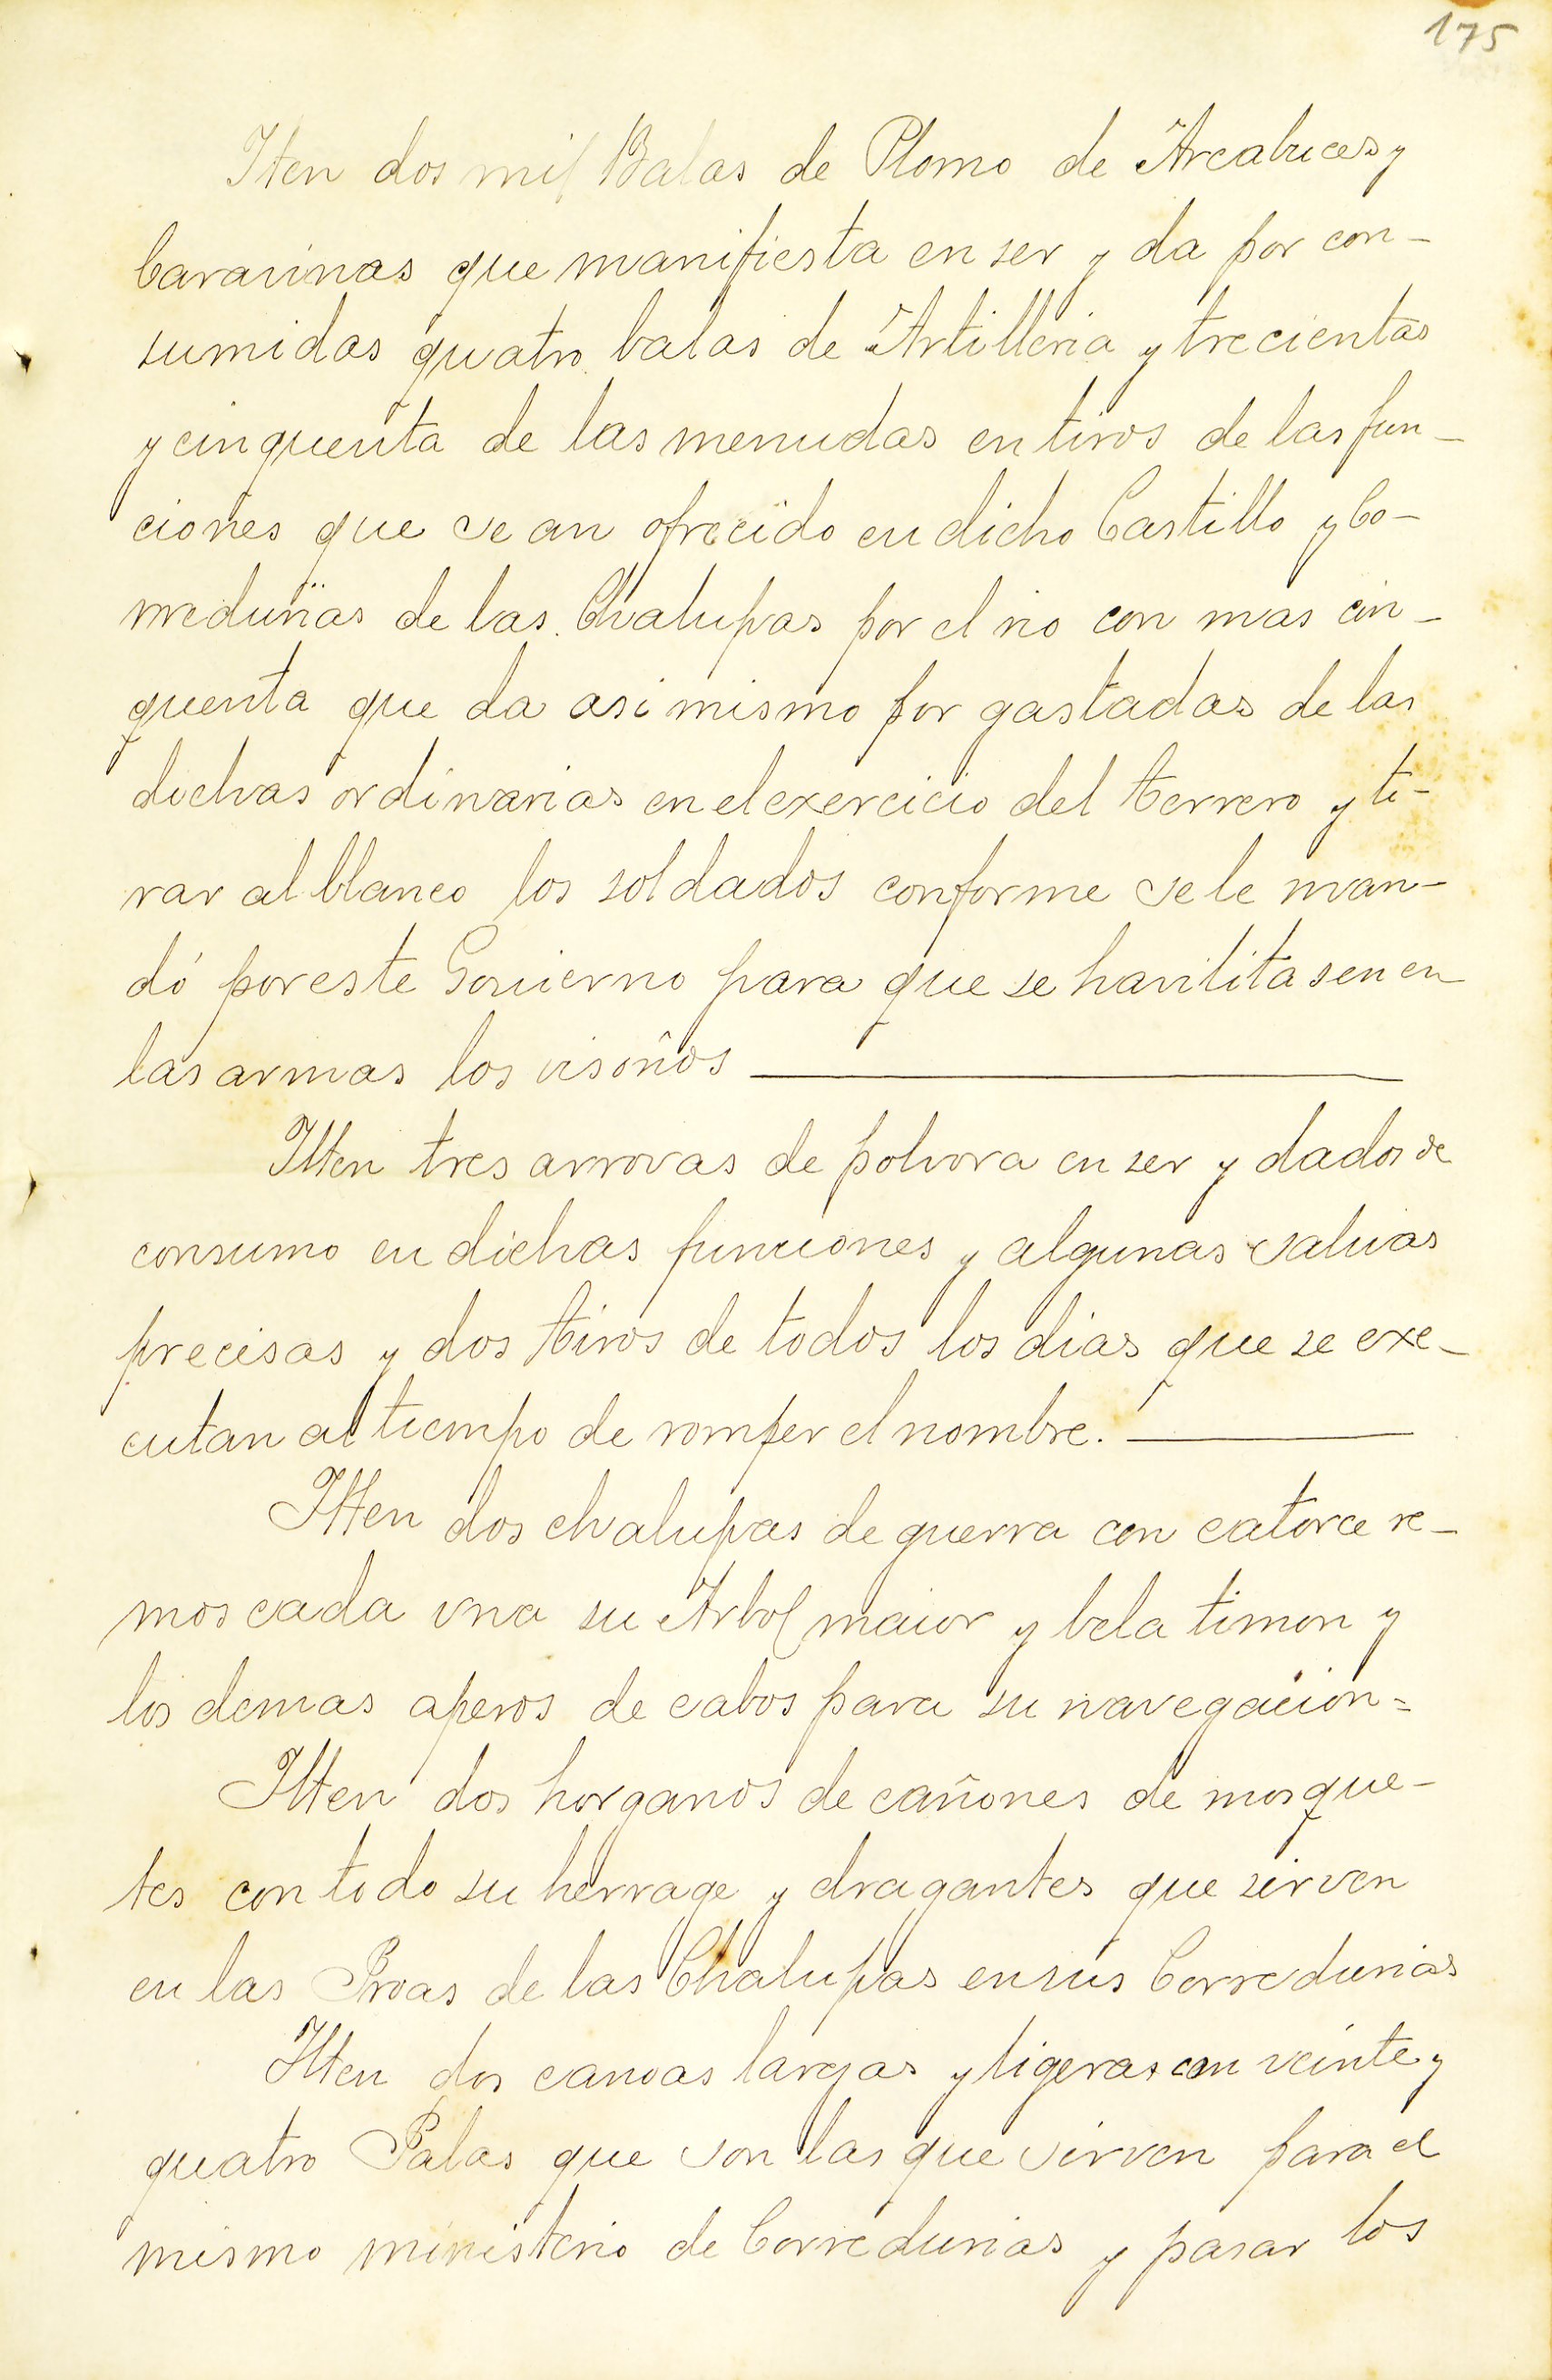 175
Iten dos mil Balas de Plomo de Arcabuces y
Caravinas que manifiesta en ser y da por con-
sumidas quatro balas de Artilleria y trecientas
y cinquenta de las menudas en tiros de las fun-
ciones que se an ofrecido en dicho Castillo y Co-
rredurias de las Chalupas por el rio con mas cin-
quenta que da asi mismo por gastadas de las
dichas ordinarias en el exercicio del terrero y ti-
rar al blanco los soldados conforme se le man-
dó por este Govierno para que se havilitasen en
las armas los visoños
Itten tres arrovas de polvora en ser y dados de
consumo en dichas funciones y algunas salvas
precisas y dos tiros de todos los dias que se exe-
cutan al tiempo de romper el nombre.
Itten dos chalupas de guerra con catorce re-
mos cada vna su Arbol maior y bela timon y
los demas aperos de cabos para su navegacion=
Itten dos horganos de cañones de mosque-
tes con todo su herrage y dragantes que sirven
en las Proas de las Chalupas en sus Corredurias
Itten dos canoas largas y ligeras con veinte y
quatro Palas que son las que sirven para el
mismo ministerio de Corredurias y pasar los